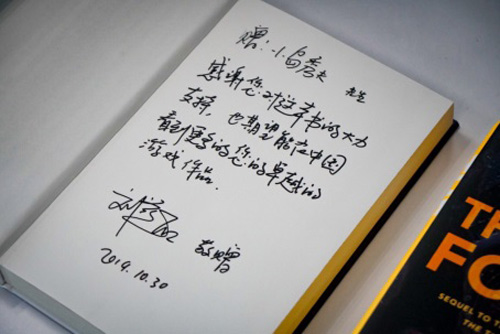 赠:小岛秀夫 先生
感谢您对这本书的大力
支持，也期望能在中国
看到更多的您的卓越的
游戏作品.
刘慈欣 敬赠
2019.10.30
FO
SEQUEL TO